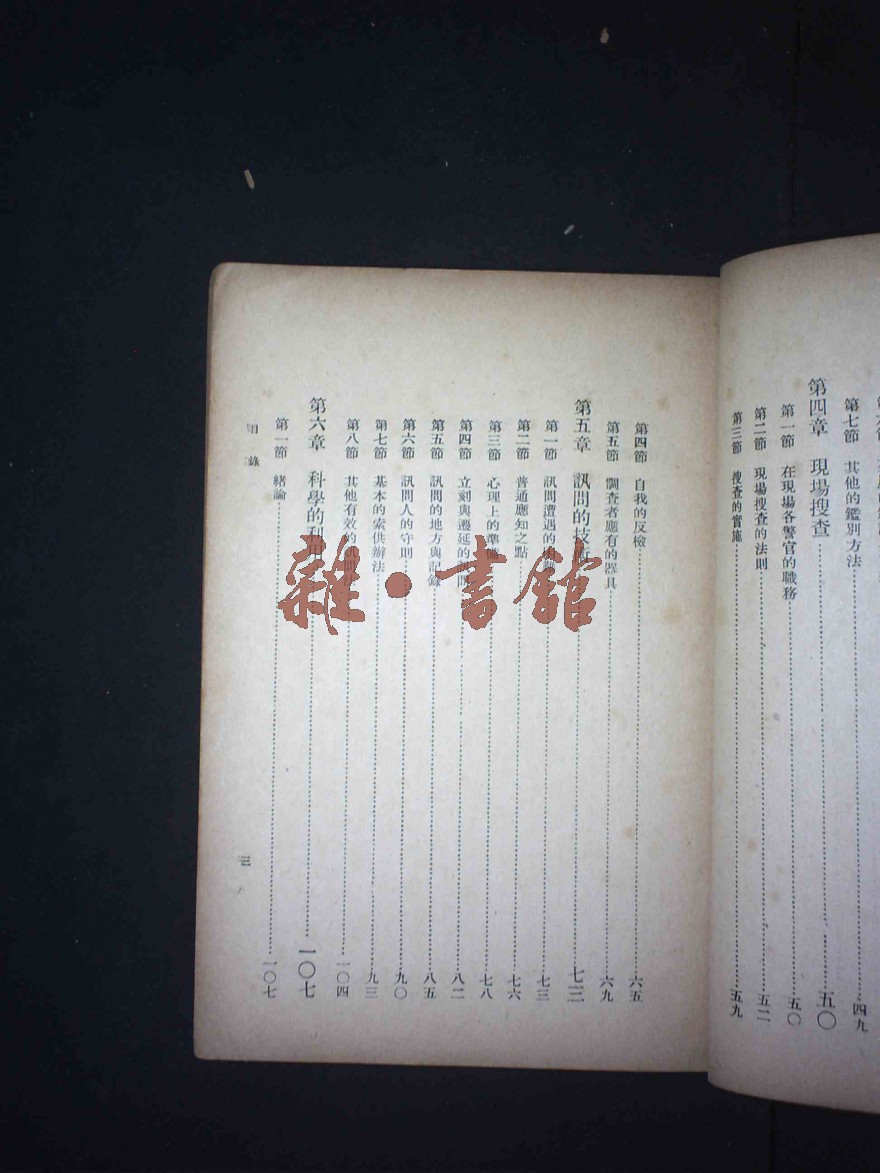 第七節 其他的鑑別方法 四九
第四章 現場搜查 五〇
第一節 在現場各警官的職務 五〇
第二節 現場搜查的法則 五二
第三節 搜查的實施 五九
第四節 自我的反檢 六五
第五節 調查者應有的器具 六九
第五章 訊問的技 七三
第一節 訊問遭遇的 七三
第二節 普通應知之點 七六
第三節 心理上的準備 七八
第四節 立刻與遷延的訊問 八二
第五節 訊問的地方與記錄 八五
第六節 訊問人的守則 九〇
第七節 基本的索供辦法 九三
第八節 其他有效的 一〇四
第六章 科學的利用 一〇七
第一節 緒論 一〇七
目錄
三
雜·書館